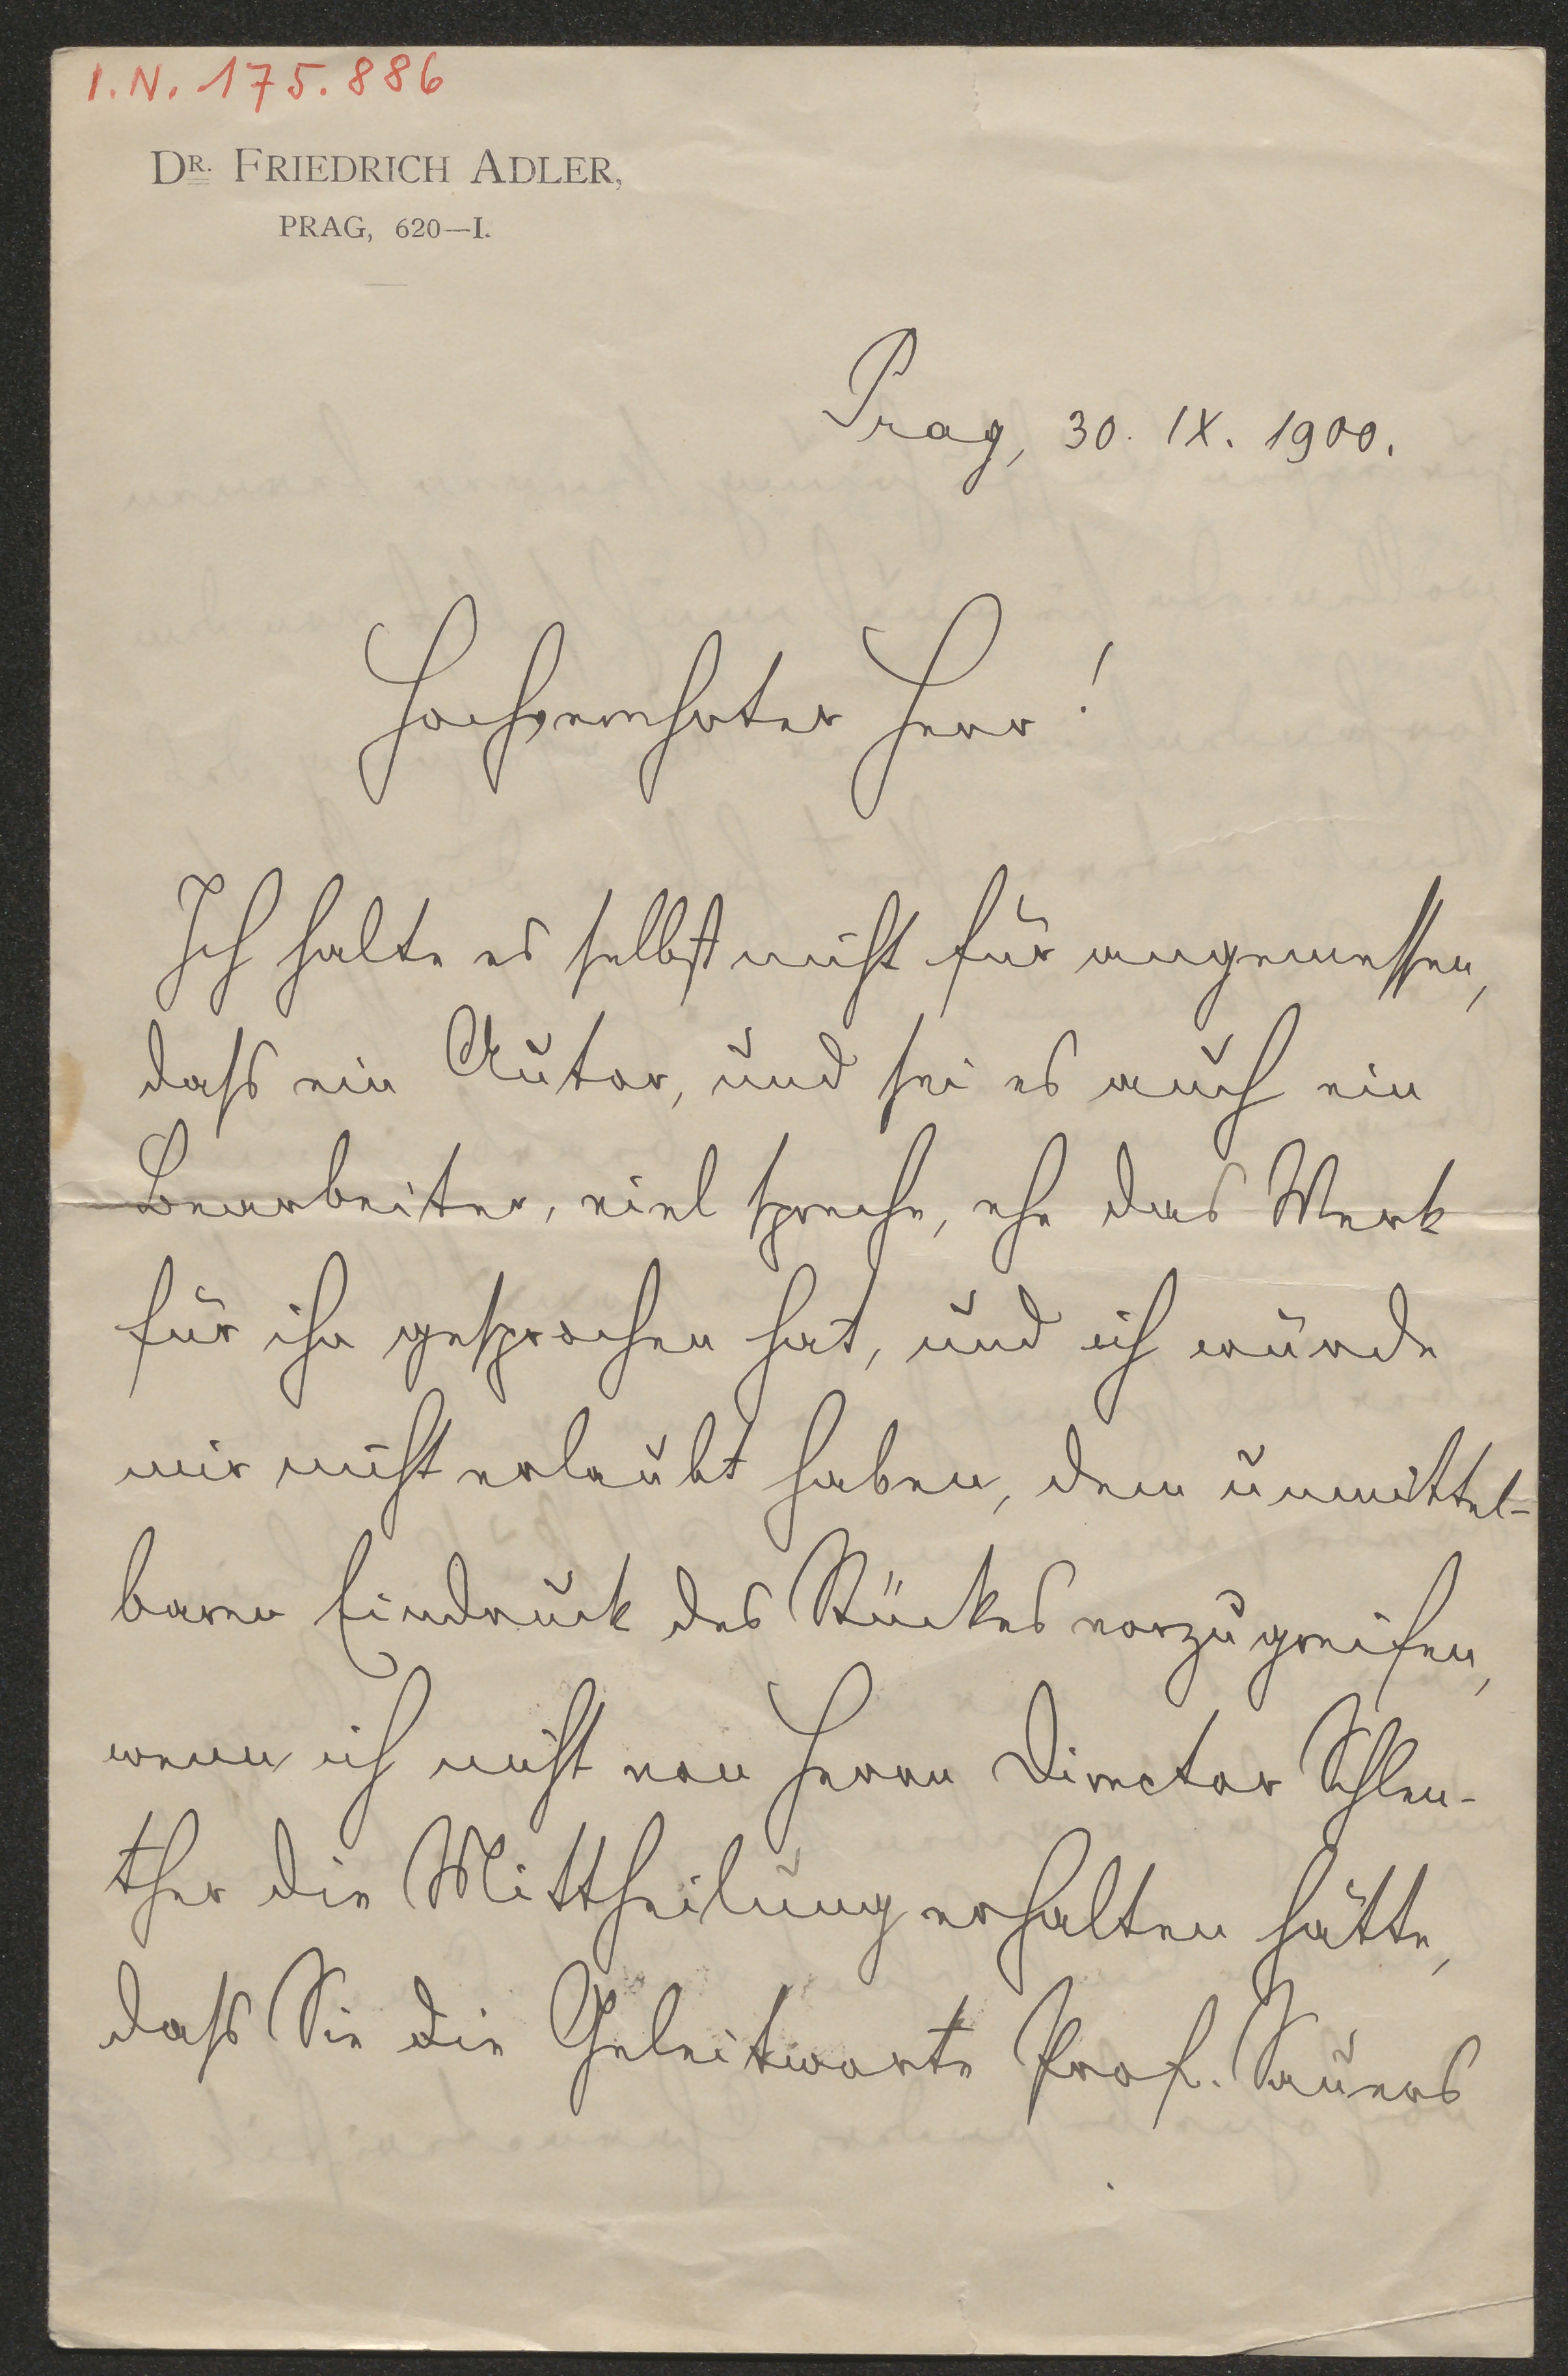 I.N. 175.886
DR. FRIEDRICH ADLER,
PRAG, 620—I.
Prag, 30. IX. 1900.
Hochverehrter Herr!
Ich halte es selbst nicht für angemessen,
dass ein Autor, und sei es auch ein
Bearbeiter, viel spreche, ehe das Werk
für ihn gesprochen hat, und ich würde
mir nicht erlaubt haben, dem unmittel-
baren Eindruck des Stückes vorzugreifen,
wenn ich nicht von Herrn Director Schlen-
ther die Mittheilung erhalten hätte,
dass Sie die Geleitworte Prof. Sauers